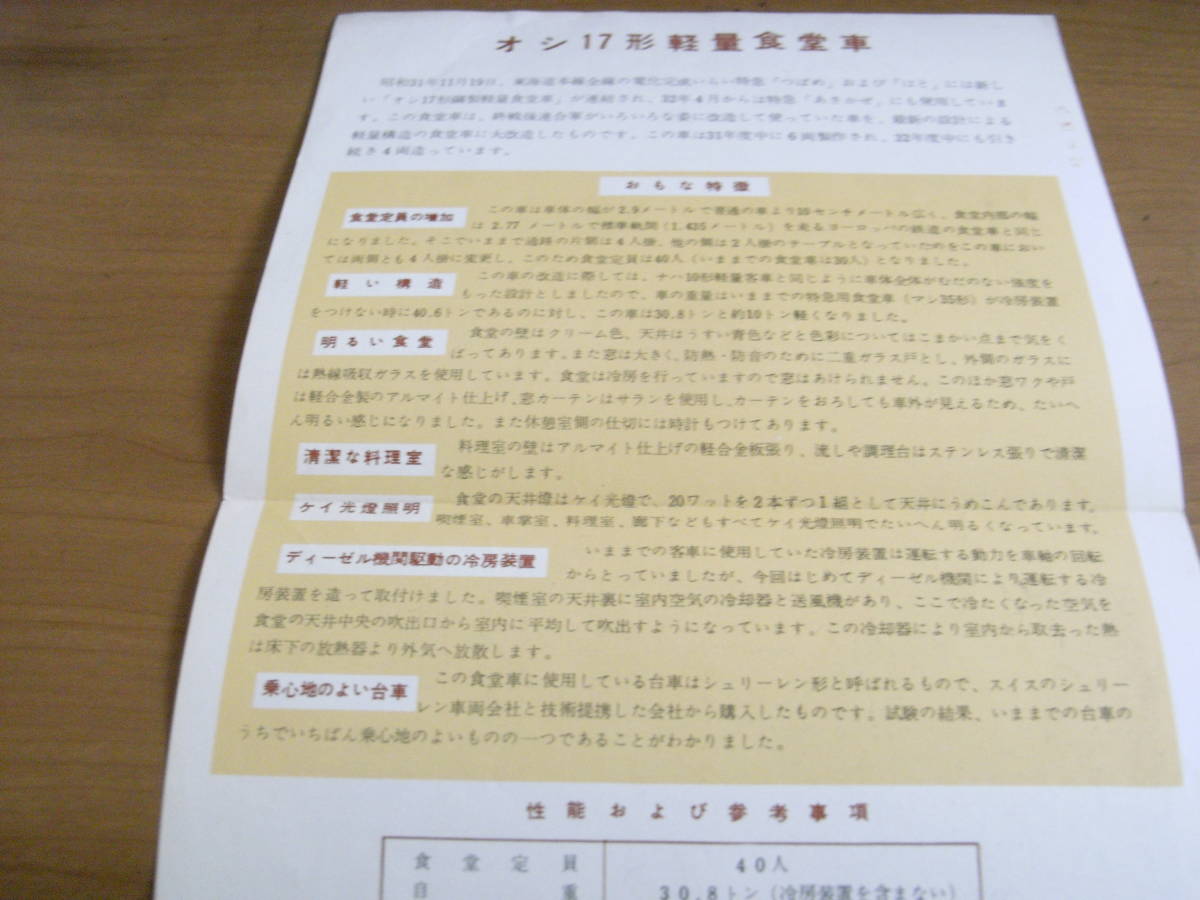 オシ17形軽量食堂車
昭和31年11月19日、東海道本線全線の電化完成いらい特急「つばめ」および「はと」には新し
い「オシ17形鋼製軽量食堂車」が連結され、32年4月からは特急「あさかぜ」にも使用していま
す。この食堂車は、終戦後連合軍がいろいろな姿に改造して使っていた車を、最新の設計による
軽量構造の食堂車に大改造したものです。この車は31年度中に6両製作され、32年度中にも引き
続き4両造っています。
おもな特徴
食堂定員の増加 この車は車体の幅が2.9メートルで普通の車より10センチメートル広く、食堂内部の幅
は2.77メートルで標準軌間(1.435メートル)を走るヨーロッパの鉄道の食堂車と同じ
になりました。そこでいままで通路の片側は4人掛、他の側は2人掛のテーブルとなっていたのをこの車におい
ては両側とも4人掛に変更し、このため食堂定員は40人(いままでの食堂車は30人)となりました。
軽い構造 この車の改造に際しては、ナハ10形軽量客車と同じように車体全体がむだのない強度を
もった設計としましたので、車の重量はいままでの特急用食堂車(マシ35形)が冷房装置
をつけない時に40.6トンであるのに対し、この車は30.8トンと約10トン軽くなりました。
明るい食堂 食堂の壁はクリーム色、天井はうすい青色などと色彩についてはこまかい点まで気をく
ばってあります。また窓は大きく、防熱・防音のために二重ガラス戸とし、外側のガラスに
は熱線吸収ガラスを使用しています。食堂は冷房を行っていますので窓はあけられません。このほか窓ワクや戸
は軽合金製のアルマイト仕上げ、窓カーテンはサランを使用し、カーテンをおろしても車外が見えるため、たいへ
ん明るい感じになりました。また休憩室側の仕切には時計もつけてあります。
清潔な料理室 料理室の壁はアルマイト仕上げの軽合金板張り、流しや調理台はステンレス張りで清潔
な感じがします。
ケイ光燈照明 食堂の天井燈はケイ光燈で、20ワットを2本ずつ1組として天井にうめこんであります。
喫煙室、車掌室、料理室、廊下などもすべてケイ光燈照明でたいへん明るくなっています。
ディーゼル機関駆動の冷房装置 いままでの客車に使用していた冷房装置は運転する動力を車軸の回転
からとっていましたが、今回はじめてディーゼル機関により運転する冷
房装置を造って取付けました。喫煙室の天井裏に室内空気の冷却器と送風機があり、ここで冷たくなった空気を
食堂の天井中央の吹出口から室内に平均して吹出すようになっています。この冷却器により室内から取去った熱
は床下の放熱器より外気へ放散します。
乗心地のよい台車 この食堂車に使用している台車はシュリーレン形と呼ばれるもので、スイスのシュリー
レン車両会社と技術提携した会社から購入したものです。試験の結果、いままでの台車の
うちでいちばん乗心地のよいものの一つであることがわかりました。
性能および参考事項
食堂定員 40人
自重 30.8トン(冷房装置を含まない)